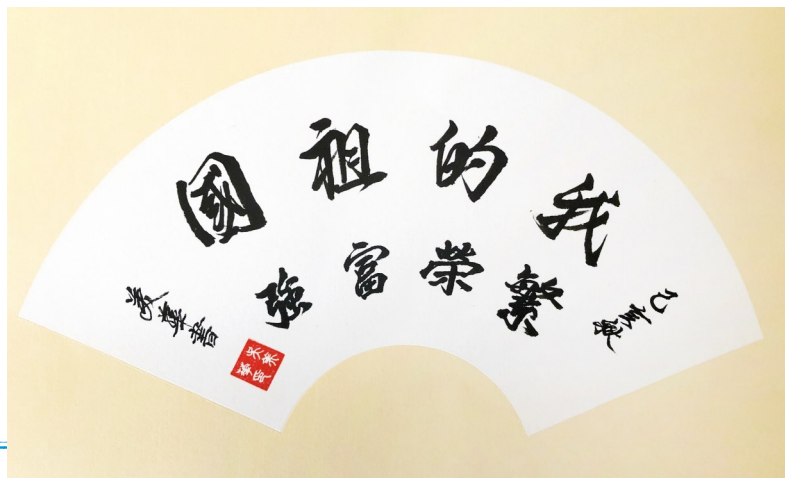 我的祖國
繁榮富強
己亥歲